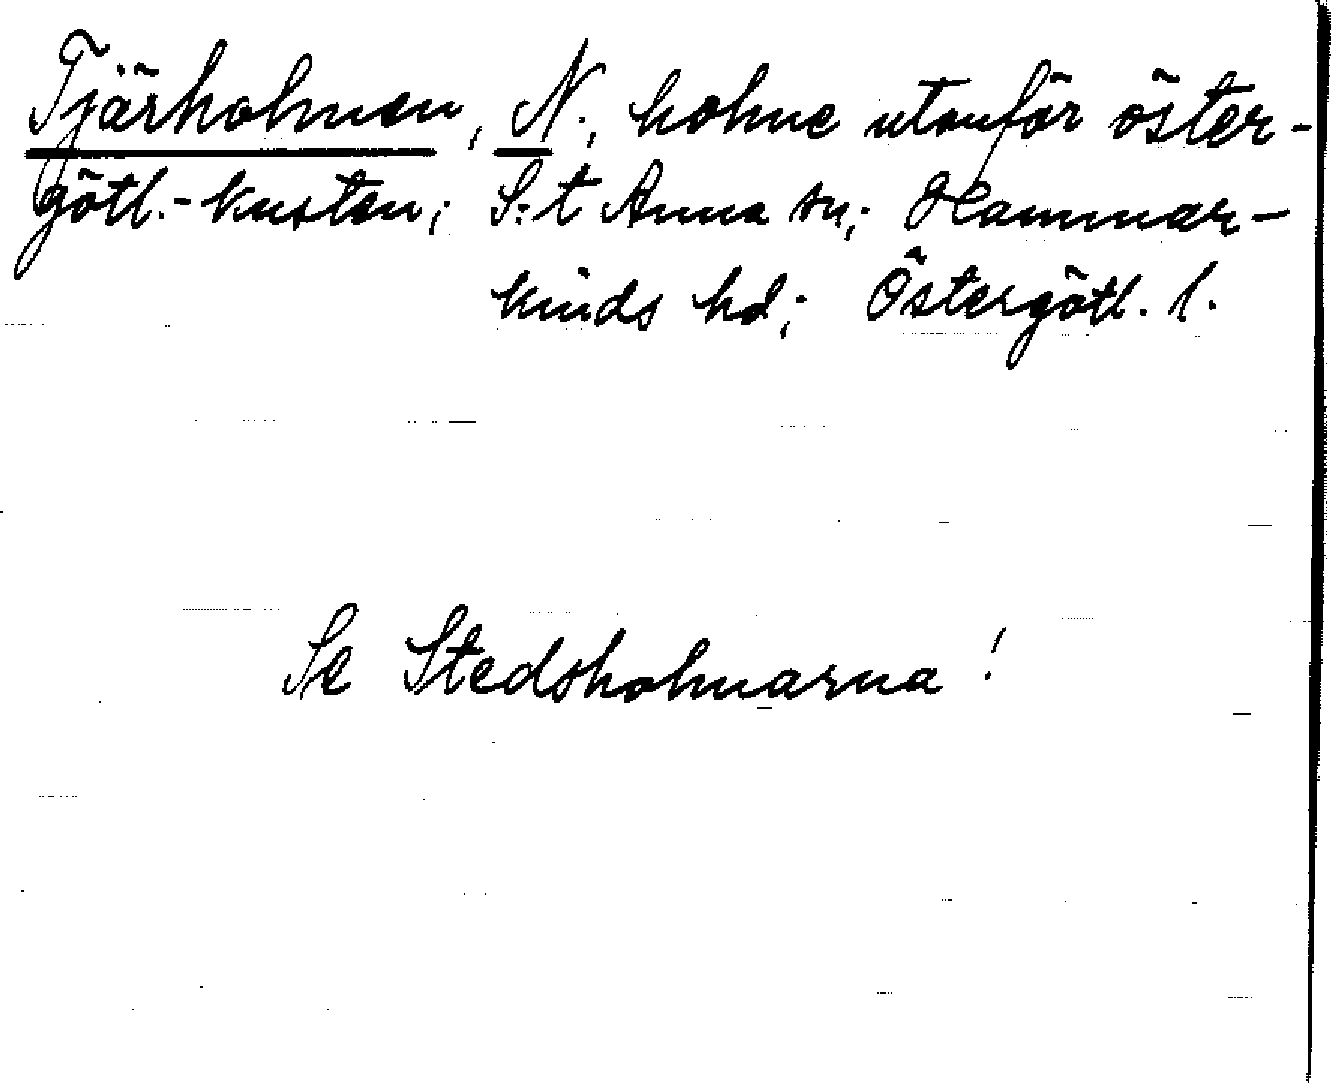 Tjärholmen, N., holme utanför öster-
götl.-kusten; S:t Anna sn; Hammar-
kinds hd; Östergötl. l.
Se Stedsholmarna!